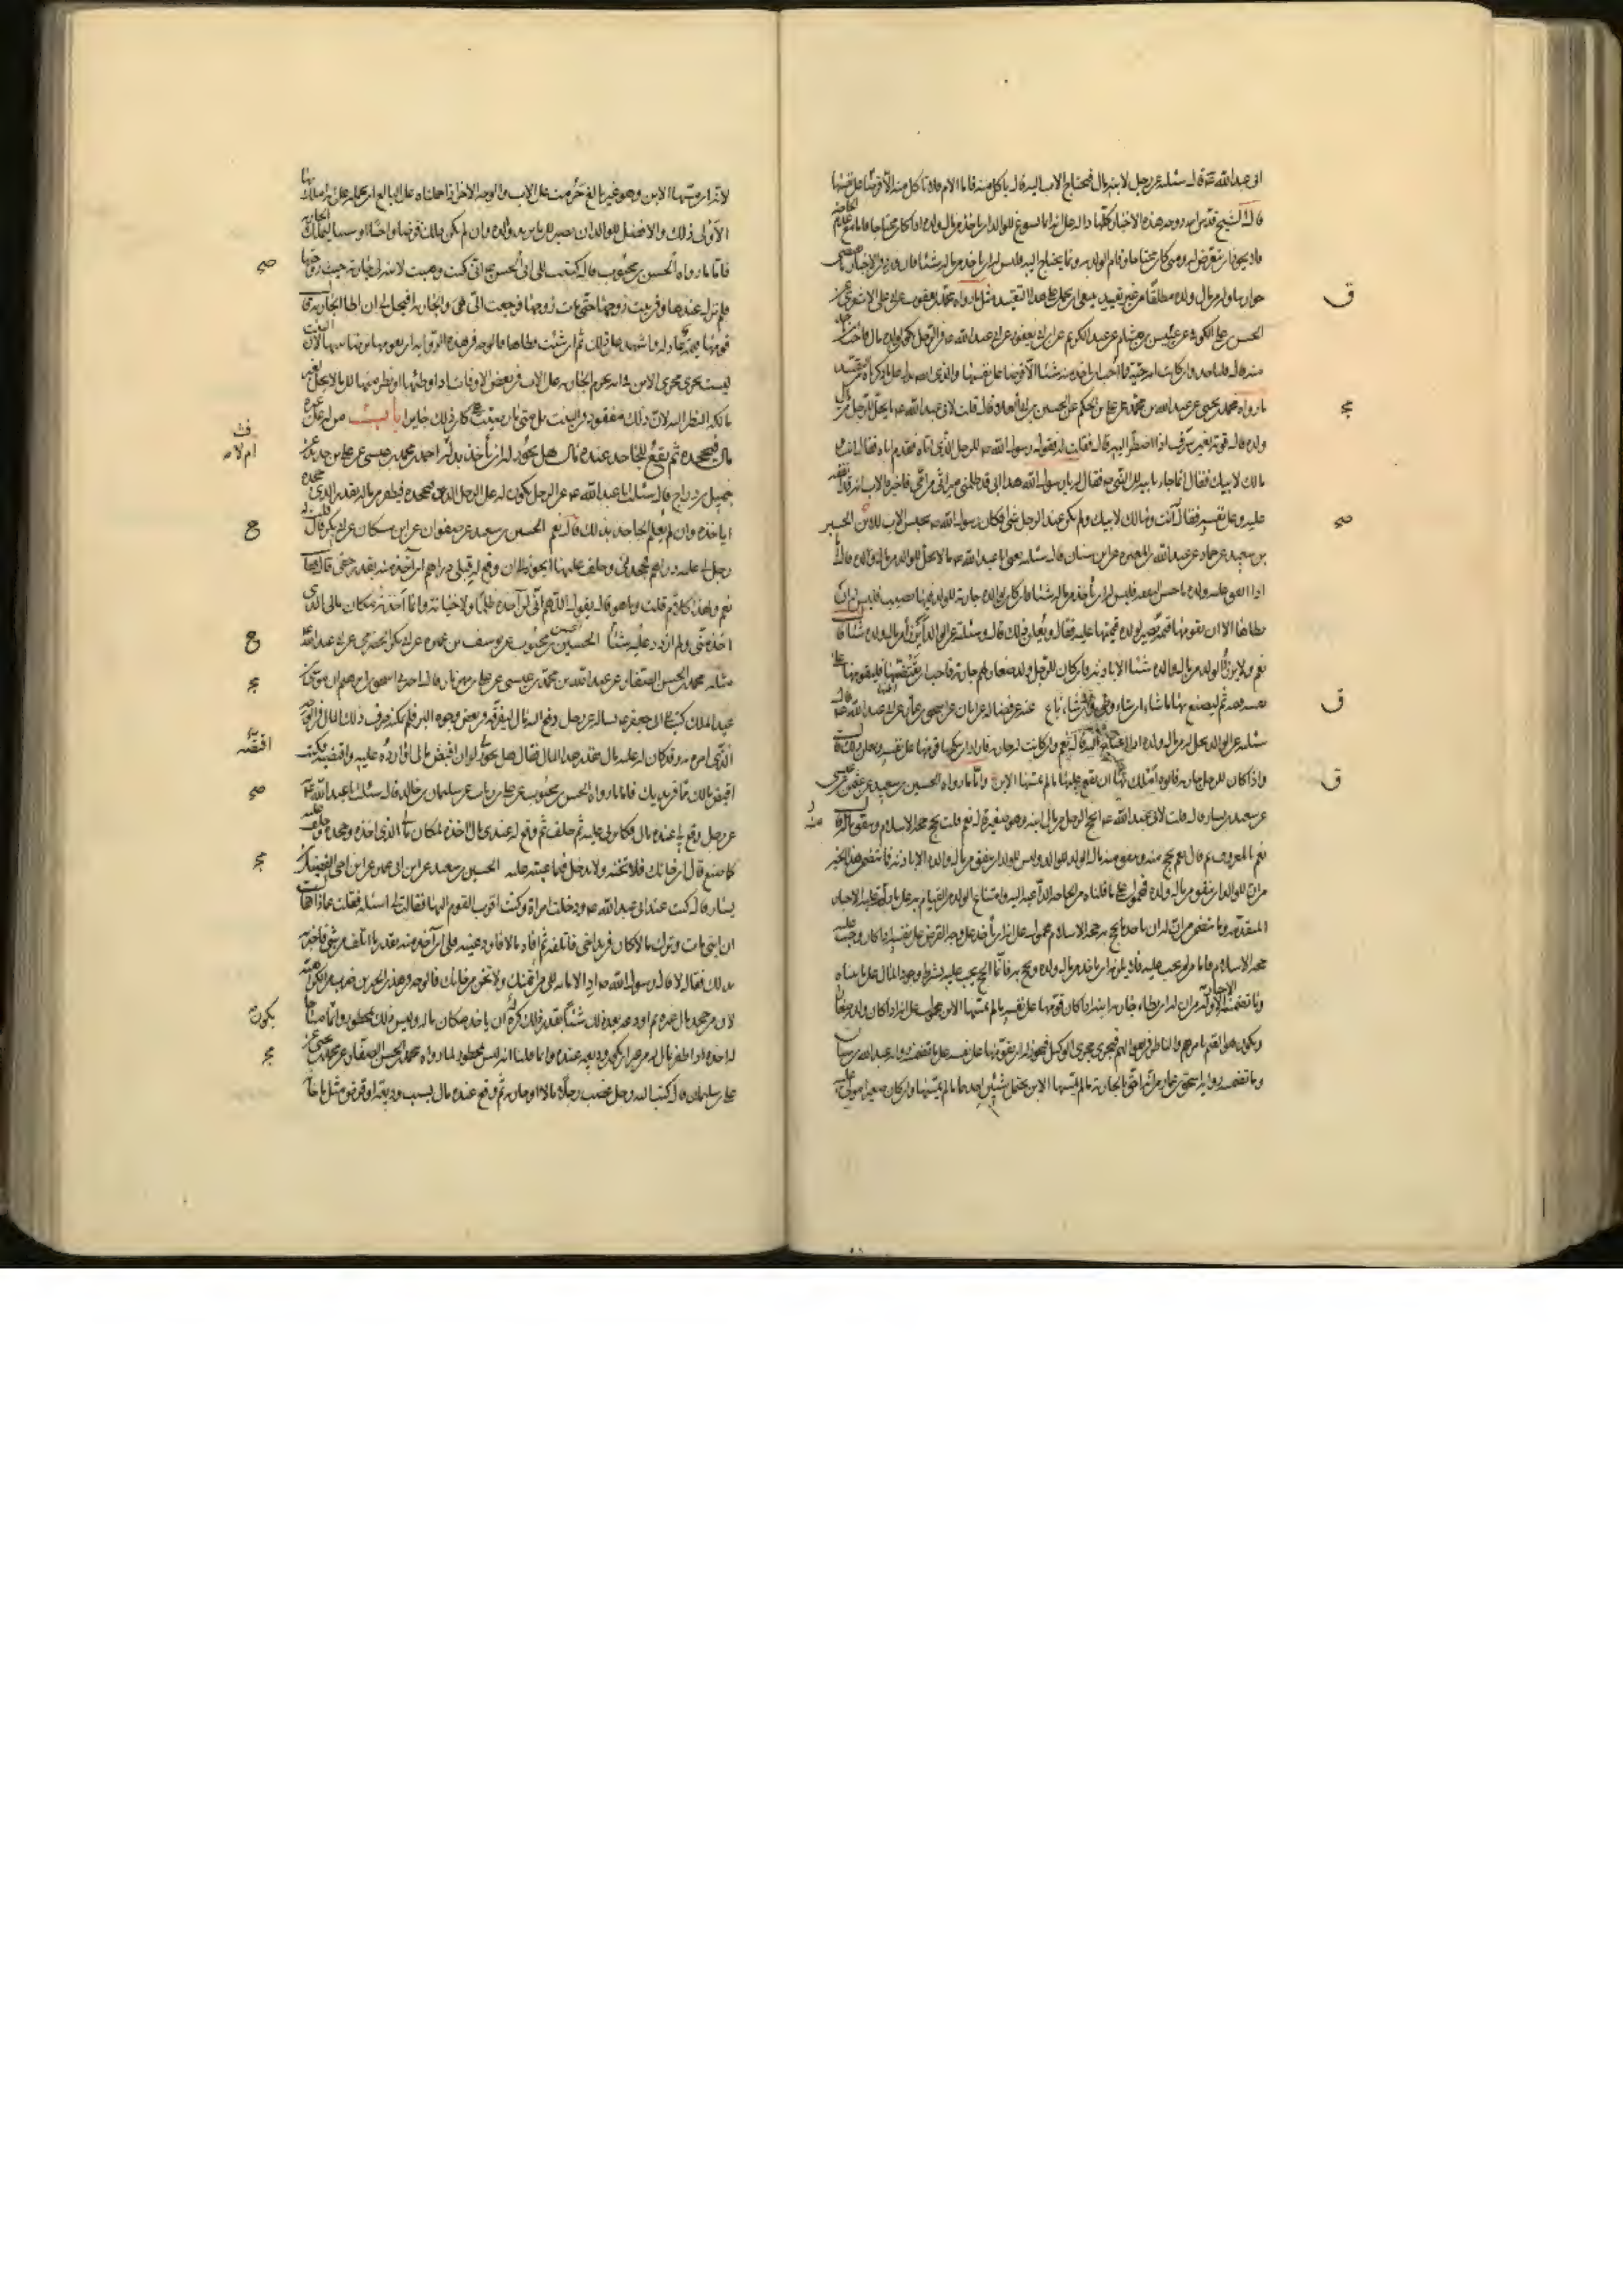 ابى عبد الله ع قال سئلته عن رجل لابنه مال فيحتاج الاب اليه قال ياكل منه فاما الام فلا تاكل منه الا قرضا على نفسها
قال الشيخ قدس الله روحه هذه الاخبار كلها دالة على انه انما يسوغ للوالد ان ياخذ من مال ولده اذا كان محتاجا فاما مع عدم الحاجة
فلا يجوز ان يتعرض له ومتى كان محتاجا وقام الولد به وبما يحتاج اليه فليس له ان ياخذ من ماله شيئا فان ورد فى الاخبار ما يتضمن
جواز تناوله من مال ولده مطلقا من غير تقييد فينبغى ان يحمل على هذا التقييد مثل ما رواه محمد بن يعقوب عن ابى على الاشعرى عن
الحسن بن على الكوفى عن عبيس بن هشام عن عبد الكريم عن ابن ابى يعفور عن ابى عبد الله ع فى الرجل يكون لولده مال فاحب ان ياخذ
منه قال فلياخذ وان كانت امه حية فما احب ان ياخذ منه شيئا الا قرضا على نفسها والذى يدل على ما ذكرناه من التقييد
ما رواه محمد بن يحيى عن عبد الله بن محمد عن على بن الحكم عن الحسين بن ابى العلاء قال قلت لابى عبد الله ع ما يحل للرجل من مال
ولده قال قوته بغير سرف اذا اضطر اليه قال فقلت له فقول رسول الله ص للرجل الذى اتاه فقدم اباه فقال انت و
مالك لابيك فقال انما جاء بابيه الى النبى ص فقال له يا رسول الله هذا ابى قد ظلمنى ميراثى من امى فاخبره الاب انه قد انفقه
عليه وعلى نفسه فقال انت ومالك لابيك ولم يكن عند الرجل شئ افكان رسول الله ص يحبس الاب للابن الحسين
بن سعيد عن حماد عن عبد الله بن المغيرة عن ابن سنان قال سئلته يعنى ابا عبد الله ع ما ذا يحل للوالد من مال ولده قال اما
اذا انفق عليه ولده باحسن النفقة فليس له ان ياخذ من ماله شيئا فان كان لوالده جارية للولد فيها نصيب فليس له ان
يطاها الا ان يقومها قيمة تصير لولده قيمتها عليه فقال ويعلن ذلك قال وسئلته عن الوالد ايرزأ من مال ولده شيئا قال
نعم ولا يرزأ الولد من مال والده شيئا الا باذنه فان كان للرجل ولد صغار لهم جارية فاحب ان يقتضها فليقومها على
نفسه قيمة ثم ليصنع بها ما شاء ان شاء وطئ وان شاء باع عنه عن فضالة عن ابان عن اسحق بن عمار عن ابى عبد الله ع قال
سئلته عن الوالد يحل له من مال ولده اذا احتاج اليه قال نعم وان كانت له جارية فاراد ان ينكحها قومها على نفسه ويعلن ذلك قال
واذا كان للرجل جارية فابوه املك بها ان يقع عليها ما لم يمسها الابن واما ما رواه الحسين بن سعيد عن صفوان بن يحيى
عن سعيد بن يسار قال قلت لابى عبد الله ع ايحج الرجل من مال ابنه وهو صغير قال نعم قلت يحج حجة الاسلام وينفق منه قال
نعم بالمعروف ثم قال نعم يحج منه وينفق منه ان مال الولد للوالد وليس للولد ان ينفق من مال والده الا باذنه فما تضمن هذا الخبر
من ان للوالد ان ينفق من مال ولده فمحمول على ما قلناه من الحاجة الداعية اليه وامتناع الولد من القيام به على ما دلت عليه الاخبار
المتقدمة وما تضمن من ان له ان ياخذ ما يحج به حجة الاسلام محمول على ان له ان ياخذ على وجه القرض على نفسه اذا كان وجبت عليه
حجة الاسلام فاما من لم يجب عليه فلا يلزمه ان ياخذ من مال ولده ويحج به فانما الحج يجب عليه بشرط وجود المال على ما بيناه
وما تضمنت الاخبار الاولة من ان له ان يطاء جارية ابنه اذا كان قومها على نفسه ما لم يمسها الابن محمول على انه اذا كان ولده صغارا
ويكون هو القيم بامرهم والناظر فى اموالهم فيجرى مجرى الوكيل فيجوز له ان يقومها على نفسه على ما تضمنه رواية عبد الله بن سنان
وما تضمنه رواية اسحق بن عمار من انه احق بالجارية ما لم يمسها الابن يحتمل شيئين احدهما ما لم يمسها وان كان صغيرا هو ولى عليه
لانه ان مسها الابن وهو غير بالغ حرمت على الاب والوجه الاخر اذا حملناه على البالغ ان نحمله على انه املك بها
الاولى ذلك والافضل للولد ان يصير الى ما يريد والده وان لم يكن ذلك فرضا واجبا او سببا لتمليك الجارية
فاما ما رواه الحسن بن محبوب قال كتبت الى ابى الحسن ع انى كنت وهبت لابنة لى جارية حيث زوجتها
فلم تزل عندها وفى بيت زوجها حتى مات زوجها فرجعت الى هى والجارية افيحل لى ان اطا الجارية قال
قومها قيمة عادلة واشهد على ذلك ثم ان شئت فطاها فالوجه فى هذه الرواية ان يقومها برضا منها لان البنت
ليست تجرى مجرى الابن فى انه يحرم الجارية على الاب فى بعض الاوقات اذا وطئها او نظر منها الى ما لا يحل لغير
مالكه النظر اليه لان ذلك مفقود فى البنت بل متى بان رضيت كان ذلك جايزا باب من له على غيره
مال فيجحده ثم يقع للجاحد عنده مال هل يجوز له ان ياخذ بدله احمد بن محمد بن عيسى عن على بن حديد عن
جميل بن دراج قال سئلت ابا عبد الله ع عن الرجل يكون له على الرجل الدين فيجحده فيظفر من ماله بقدر الذى جحده
اياخذه وان لم يعلم الجاحد بذلك قال نعم الحسين بن سعيد عن صفوان عن ابن مسكان عن ابى بكر قال قلت له
رجل لى عليه دراهم فجحدنى وحلف عليها ايجوز لى ان وقع له قبلى دراهم ان آخذ منه بقدر حقى قال فقال
نعم ولهذا كلام قلت وما هو قال يقول اللهم انى لم آخذه ظلما ولا خيانة وانما اخذته مكان مالى الذى
اخذ منى ولم ازدد عليه شيئا الحسن بن محبوب عن يوسف بن عميرة عن ابى بكر الحضرمى عن ابى عبد الله ع
مثله محمد بن الحسن الصفار عن عبد الله بن محمد بن عيسى عن على بن مهزيار قال اخبرنى اسحق بن ابراهيم ان موسى بن
عبد الملك كتب الى ابى جعفر ع يساله عن رجل دفع اليه مال ليفرقه فى بعض وجوه البر فلم يمكنه صرف ذلك المال فى الوجه
الذى امره به وقد كان له عليه مال بقدر هذا المال فقال هل يجوز لى ان اقبض مالى او ارده عليه واقتضيه فكتب
اقبض مالك مما فى يديك فاما ما رواه الحسن بن محبوب عن على بن رئاب عن سليمان بن خالد قال سئلت ابا عبد الله ع
عن رجل وقع لى عنده مال فكابرنى عليه ثم حلف ثم وقع له عندى مال آخذه لمكان مالى الذى اخذه وجحده واحلف عليه
كما صنع قال ان خانك فلا تخنه ولا تدخل فيما عبته عليه الحسين بن سعيد عن ابن ابى عمير عن ابن اخى الفضيل بن
يسار قال كنت عند ابى عبد الله ع ودخلت امراة وكنت اقرب القوم اليها فقالت لى اسئله فقلت عما ذا قالت
ان ابنى مات وترك مالا كان فى يد اخى فاتلفه ثم افاد مالا فاودعنيه فلى ان آخذ منه بقدر ما اتلف من شئ فاخبرته
بذلك فقال لا قال رسول الله ص اد الامانة الى من ائتمنك ولا تخن من خانك فالوجه فى هذين الخبرين ضرب من الكراهية
لان من جحد مال غيره ثم اودعه بعد ذلك شيئا بقدر ذلك كره له ان ياخذ مكان ماله وليس ذلك بمحظور وانما مباحا
له اخذه اذا ظفر بمال له من غير ان يكون وديعة عنده وانما قلنا انه ليس بمحظور لما رواه محمد بن الحسن الصفار عن محمد بن عيسى عن
على بن سليمان قال كتب اليه رجل غصب رجلا مالا او جارية ثم وقع عنده مال بسبب وديعة او قرض مثل ما خانه